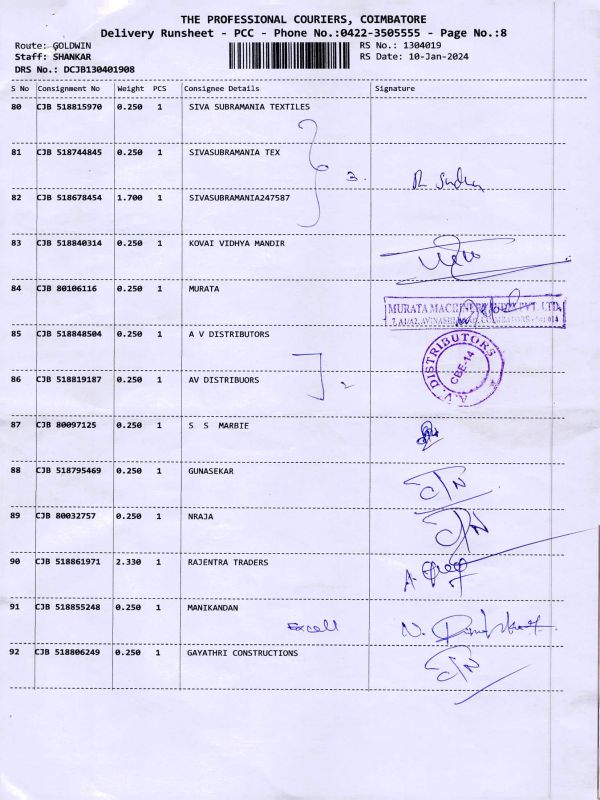 THE PROFESSIONAL COURIERS, COIMBATORE
Delivery Runsheet - PCC - Phone No.:0422-3505555 - Page No.:8
Route: GOLDWIN RS No.: 1304019
Staff: SHANKAR RS Date: 10-Jan-2024
DRS No.: DCJB130401908
S No Consignment No Weight PCS Consignee Details Signature
80 CJB 518815970 0.250 1 SIVA SUBRAMANIA TEXTILES
81 CJB 518744845 0.250 1 SIVASUBRAMANIA TEX
3.
82 CJB 518678454 1.700 1 SIVASUBRAMANIA247587
83 CJB 518840314 0.250 1 KOVAI VIDHYA MANDIR
84 CJB 80106116 0.250 1 MURATA
MURATA MACHINERY PVT. LTD.
85 CJB 518848504 0.250 1 A V DISTRIBUTORS
A.V. DISTRIBUTORS
CBE-14
86 CJB 518819187 0.250 1 AV DISTRIBUORS
2
87 CJB 80097125 0.250 1 S S MARBIE
88 CJB 518795469 0.250 1 GUNASEKAR
89 CJB 80032757 0.250 1 NRAJA
90 CJB 518861971 2.330 1 RAJENTRA TRADERS
91 CJB 518855248 0.250 1 MANIKANDAN
Excell N.
92 CJB 518806249 0.250 1 GAYATHRI CONSTRUCTIONS